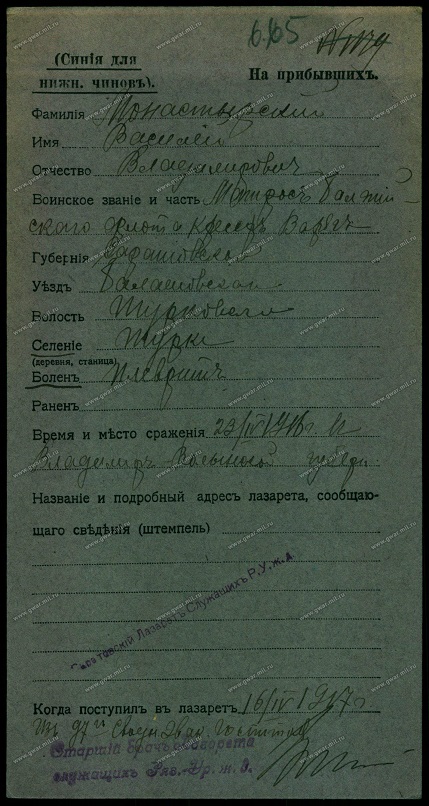 6.165
(Синія для
нижн. чиновъ).
На прибывшихъ.
Фамилія Монастырский
Имя Василий
Отчество Владимирович
Воинское званіе и часть Матрос Балтий-
ского флота
Губернія Саратовской
Уѣздъ Балашовской
Волость Турковской
Селеніе Турки
(деревня, станица)
Боленъ Плеврит
Раненъ
Время и мѣсто сраженія 23/IV 1916 г.
Владимир Волынской губер.
Названіе и подробный адресъ лазарета, сообщаю-
щаго свѣдѣнія (штемпель)
Саратовскій Лазаретъ Служащихъ Р.У.ж.д.
Когда поступилъ въ лазаретъ 16/IV 1917 г.
Старшій врачъ лазарета
служащихъ Ряз.-Ур. ж. д.
www.gwar.mil.ru